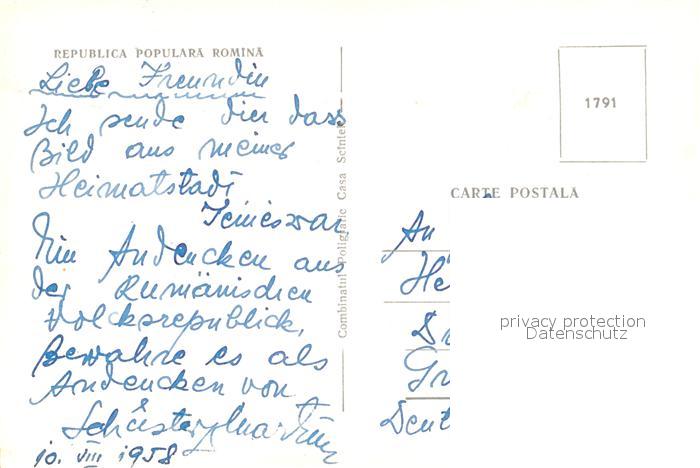 REPUBLICA POPULARĂ ROMÎNĂ
Liebe Freundin
Ich sende dir dass
Bild aus meiner
Heimatstadt
Temeswar
Ein Andencken aus
der Rumänischen
Volcksrepublick,
Bewahre es als
Andencken von
10. VIII 1958
Combinatul Poligrafic Casa Scînteii
1791
CARTE POSTALĂ
An
privacy protection
Datenschutz